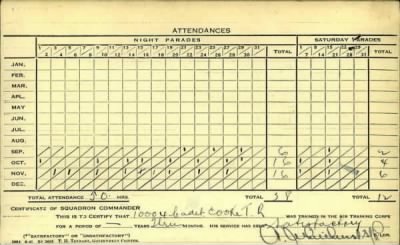 ATTENDANCES
NIGHT PARADES SATURDAY PARADES
1 3 5 7 9 11 13 15 17 19 21 23 25 27 29 31 TOTAL 1 8 15 22 29 TOTAL
2 4 6 8 10 12 14 16 18 20 22 24 26 28 30 7 14 21 28
JAN.
FEB.
MAR.
APL.
MAY
JUNE
JULY
AUG.
SEP. 6 2
OCT. 16 4
NOV. 16 6
DEC.
TOTAL ATTENDANCE 50 HRS. 38 12
CERTIFICATE OF SQUADRON COMMANDER
THIS IS TO CERTIFY THAT 10004 Cadet Cooke T. R WAS TRAINING IN THE AIR TRAINING CORPS
FOR A PERIOD OF — YEARS three MONTHS. HIS SERVICE HAS BEEN Satisfactory
("SATISFACTORY" OR "UNSATISFACTORY")
T. H. TENNANT, GOVERNMENT PRINTER.